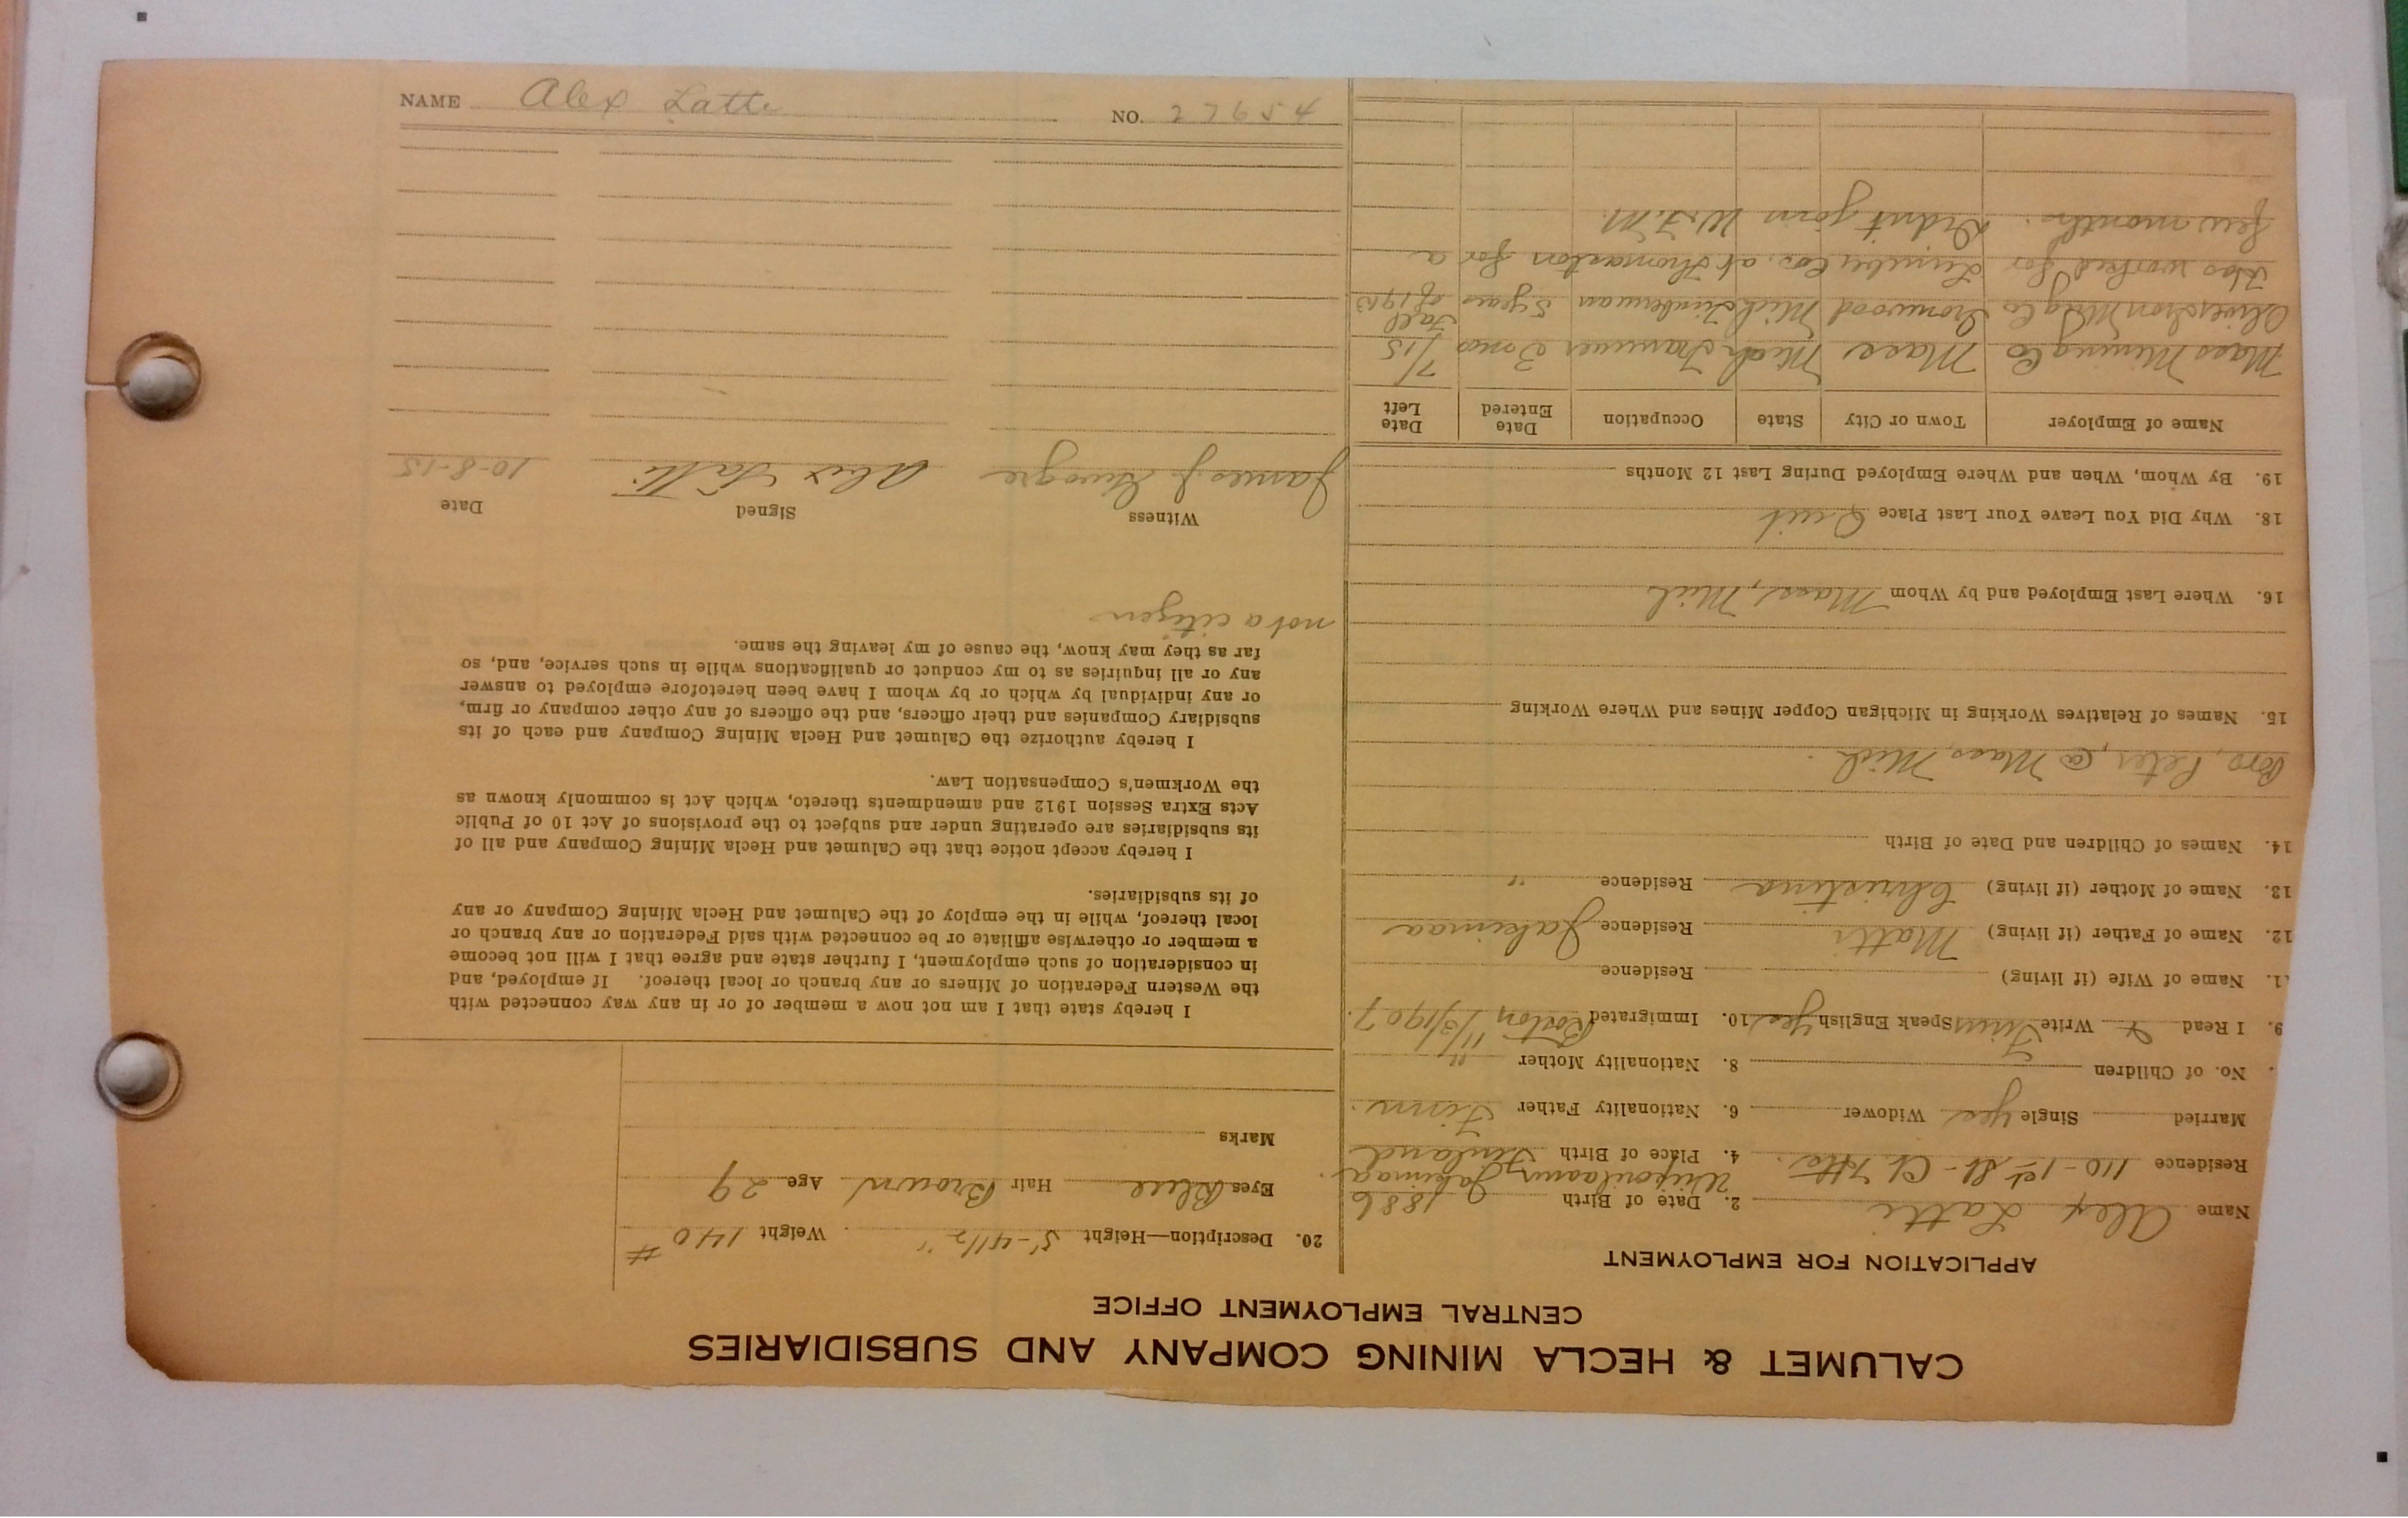 CALUMET & HECLA MINING COMPANY AND SUBSIDIARIES
CENTRAL EMPLOYMENT OFFICE
APPLICATION FOR EMPLOYMENT
Name Alex Latti 2. Date of Birth 1886
Residence 110-1st St- 4. Place of Birth Finland
Married Single Yes Widower 6. Nationality Father Finn.
No. of Children 8. Nationality Mother "
9. I Read & Write Finn Speak English Yes 10. Immigrated Boston 11/3/1907.
11. Name of Wife (if living) Residence
12. Name of Father (if living) Matti Residence
13. Name of Mother (if living) Christina Residence "
14. Names of Children and Date of Birth
Bro, Peter, @ Mass, Mich.
15. Names of Relatives Working in Michigan Copper Mines and Where Working
16. Where Last Employed and by Whom Mass, Mich
18. Why Did You Leave Your Last Place Quit
19. By Whom, When and Where Employed During Last 12 Months
Name of Employer Town or City State Occupation Date Entered Date Left
Mass Mining Co Mass Mich Trammer 3 mos 7/15
Oliver Iron Mng Co Ironwood Mich Timberman 5 years Fall of 1913
Has worked for Lumber Cos. at Thomaston for a
few months. Didnt join W.F.M.
20. Description—Height 5'-4 1/2" Weight 140 #
Eyes Blue Hair Brown Age 29
Marks
I hereby state that I am not now a member of or in any way connected with
the Western Federation of Miners or any branch or local thereof. If employed, and
in consideration of such employment, I further state and agree that I will not become
a member or otherwise affiliate or be connected with said Federation or any branch or
local thereof, while in the employ of the Calumet and Hecla Mining Company or any
of its subsidiaries.
I hereby accept notice that the Calumet and Hecla Mining Company and all of
its subsidiaries are operating under and subject to the provisions of Act 10 of Public
Acts Extra Session 1912 and amendments thereto, which Act is commonly known as
the Workmen's Compensation Law.
I hereby authorize the Calumet and Hecla Mining Company and each of its
subsidiary Companies and their officers, and the officers of any other company or firm,
or any individual by which or by whom I have been heretofore employed to answer
any or all inquiries as to my conduct or qualifications while in such service, and, so
far as they may know, the cause of my leaving the same.
not a citizen
Witness Signed Date
James J. Alex Latti 10-8-15
NAME Alex Latti NO. 27654